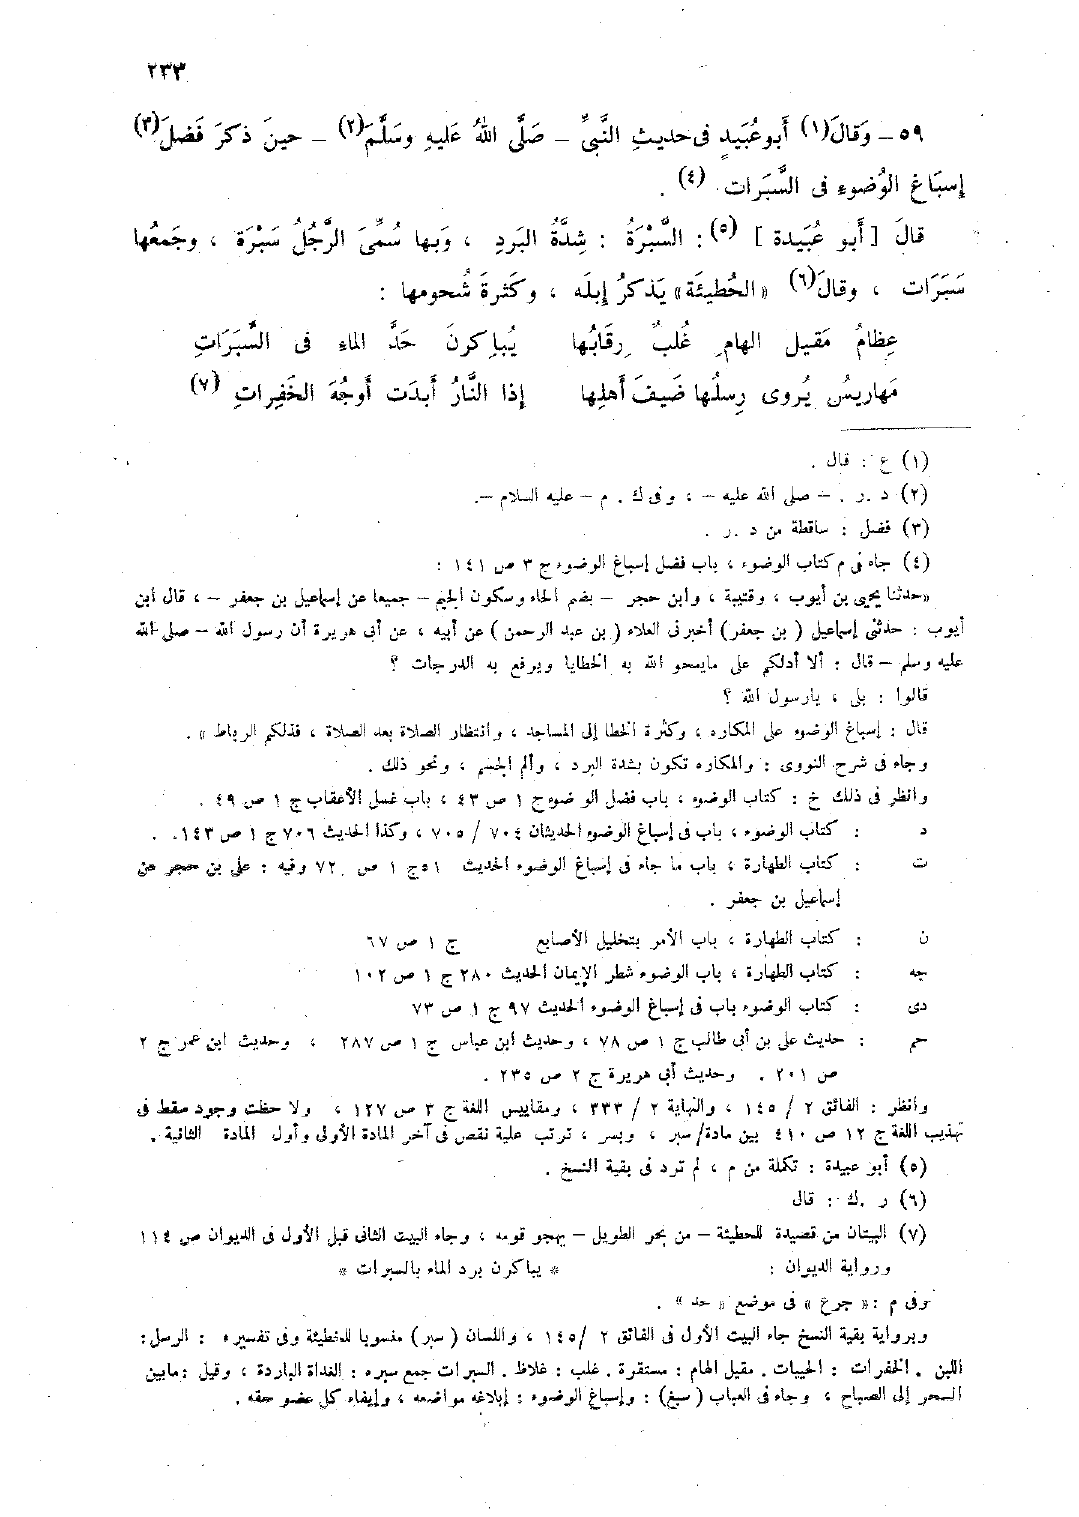 ٢٣٣
٥٩ – وَقالَ(١) أَبو عُبَيدٍ فى حديثِ النَّبىِّ – صَلَّى اللهُ عَليهِ وسَلَّمَ(٢) – حينَ ذكرَ فَضلَ(٣)
إسبَاغ الوُضوءِ فى السَّبَرات (٤) .
قالَ [ أَبو عُبَيدة ] (٥) : السَّبْرَةُ : شِدَّةُ البَردِ ، وَبها سُمِّىَ الرَّجُلُ سَبْرَة ، وجَمعُها
سَبَرَات ، وقالَ(٦) « الحُطيئَة » يَذكرُ إبلَه ، وكَثرةَ شُحومها :
عِظامُ مَقيل الهامِ غُلبٌ رِقَابُها يُباكِرنَ حَدَّ الماءِ فى السَّبَرَاتِ
مَهاريسُ يُروى رِسلُها ضَيفَ أَهلِها إذا النَّارُ أَبدَت أَوجُهَ الخَفِراتِ (٧)
(١) ع : قال .
(٢) د . ر . – صلى الله عليه – ، وفى ك . م – عليه السلام –.
(٣) فضل : ساقطة من د . ر .
(٤) جاء فى م كتاب الوضوء ، باب فضل إسباغ الوضوء ج ٣ ص ١٤١ :
«حدثنا يحيى بن أيوب ، وقتيبة ، وابن حجر – بضم الحاء وسكون الجيم – جميعا عن إسماعيل بن جعفر – ، قال ابن
أيوب : حدثنى إسماعيل ( بن جعفر ) أخبرنى العلاء ( بن عبد الرحمن ) عن أبيه ، عن أبى هريرة أن رسول الله – صلى الله
عليه وسلم – قال : ألا أدلكم على مايمحو الله به الخطايا ويرفع به الدرجات ؟
قالوا : بلى ، يارسول الله ؟
قال : إسباغ الوضوء على المكاره ، وكثرة الخطا إلى المساجد ، وانتظار الصلاة بعد الصلاة ، فذلكم الرباط » .
وجاء فى شرح النووى : والمكاره تكون بشدة البرد ، وألم الجسم ، ونحو ذلك .
وانظر فى ذلك خ : كتاب الوضوء ، باب فضل الوضوء ج ١ ص ٤٣ ، باب غسل الأعقاب ج ١ ص ٤٩ .
د : كتاب الوضوء ، باب فى إسباغ الوضوء الحديثان ٧٠٤ / ٧٠٥ ، وكذا الحديث ٧٠٦ ج ١ ص ١٤٣ .
ت : كتاب الطهارة ، باب ما جاء فى إسباغ الوضوء الحديث ٥١ ج ١ ص ٧٢ وفيه : على بن حجر عن
إسماعيل بن جعفر .
ن : كتاب الطهارة ، باب الأمر بتخليل الأصابع ج ١ ص ٦٧
جه : كتاب الطهارة ، باب الوضوء شطر الإيمان الحديث ٢٨٠ ج ١ ص ١٠٢
دى : كتاب الوضوء باب فى إسباغ الوضوء الحديث ٩٧ ج ١ ص ٧٣
حم : حديث على بن أبى طالب ج ١ ص ٧٨ ، وحديث ابن عباس ج ١ ص ٢٨٧ ، وحديث ابن عمر ج ٢
ص ٢٠١ . وحديث أبى هريرة ج ٢ ص ٢٣٥ .
وانظر : الفائق ٢ / ١٤٥ ، والنهاية ٢ / ٣٣٣ ، ومقاييس اللغة ج ٣ ص ١٢٧ ، ولاحظت وجود سقط فى
تهذيب اللغة ج ١٢ ص ٤١٠ بين مادة/ سبر ، وبسر ، ترتب علية نقص فى آخر المادة الأولى وأول المادة الثانية .
(٥) أبو عبيدة : تكملة من م ، لم ترد فى بقية النسخ .
(٦) ر . ك : قال
(٧) البيتان من قصيدة للحطيئة – من بحر الطويل – يهجو قومه ، وجاء البيت الثانى قبل الأول فى الديوان ص ١١٤
ورواية الديوان : * يباكرن برد الماء بالسبرات *
وفى م : « جرع » فى موضع « حد » .
وبرواية بقية النسخ جاء البيت الأول فى الفائق ٢ /١٤٥ ، واللسان ( سبر ) منسوبا للحطيئة وفى تفسيره : الرسل :
اللبن . الخفرات : الحييات . مقيل الهام : مستقرة . غلب : غلاظ . السبرات جمع سبره : الغداة الباردة ، وقيل : مابين
السحر إلى الصباح ، وجاء فى العباب ( سبغ ) : وإسباغ الوضوء : إبلاغه مواضعه ، وإيفاء كل عضو حقه .